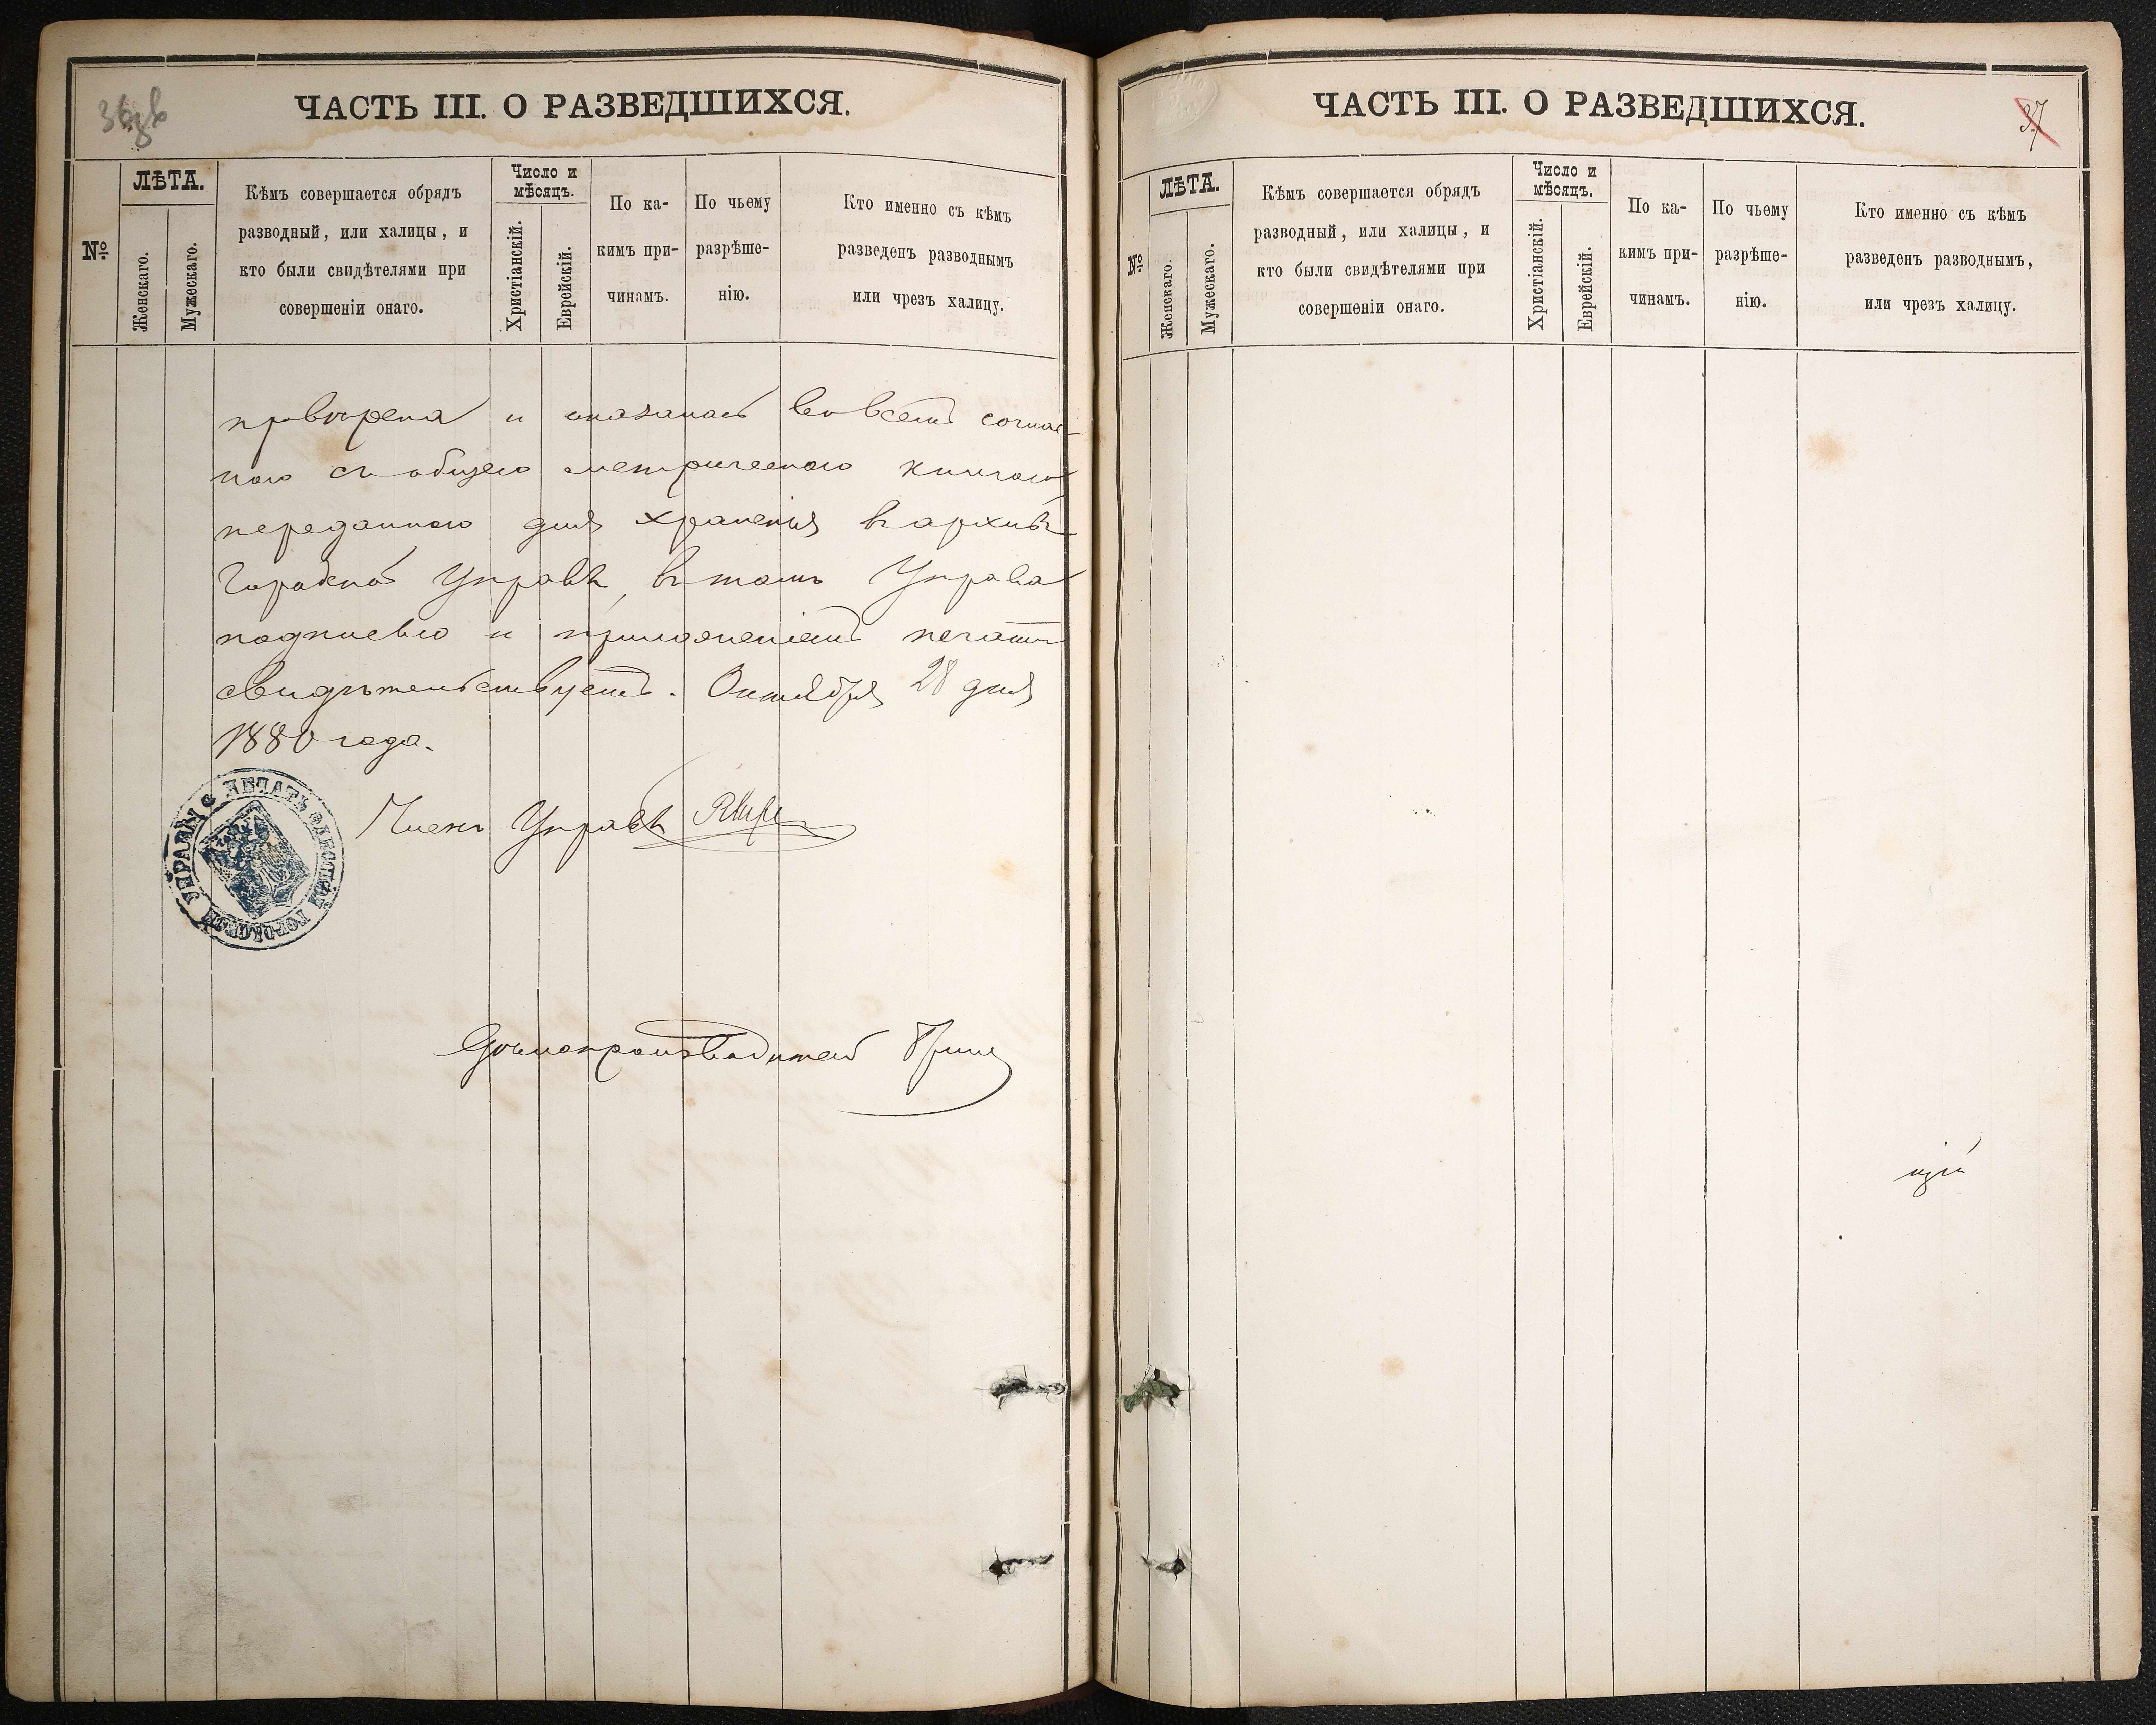 ЧАСТЬ III. О РАЗВЕДШИХСЯ.
№
ЛѢТА.
Женскаго.
Мужескаго.
Кѣмъ совершается обрядъ
разводный, или халицы, и
кто были свидѣтелями при
совершеніи онаго.
Число и
мѣсяцъ.
Христіанскій.
Еврейскій.
По ка-
кимъ при-
чинамъ.
По чьему
разрѣше-
нію.
Кто именно съ кѣмъ
разведенъ разводнымъ
или чрезъ халицу.
провѣрена и оказалась во всемъ соглас-
ною съ общею метрическою книгою
переданною для хранения въ архивъ
Городской Управѣ, въ томъ Управа
подписью и приложеніемъ печати
свидѣтельствуетъ. Октября 28 дня
1880 года.
Членъ Управы
ПЕЧАТЬ ОДЕССКОЙ ГОРОДСКОЙ УПРАВЫ
Дѣлопроизводитель
ЧАСТЬ III. О РАЗВЕДШИХСЯ.
37
№
ЛѢТА.
Женскаго.
Мужескаго.
Кѣмъ совершается обрядъ
разводный, или халицы, и
кто были свидѣтелями при
совершеніи онаго.
Число и
мѣсяцъ.
Христіанскій.
Еврейскій.
По ка-
кимъ при-
чинамъ.
По чьему
разрѣше-
нію.
Кто именно съ кѣмъ
разведенъ разводнымъ,
или чрезъ халицу.
щій